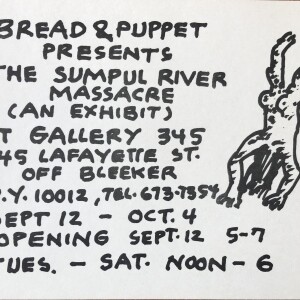 BREAD & PUPPET
PRESENTS
THE SUMPUL RIVER
MASSACRE
(AN EXHIBIT)
T GALLERY 345
45 LAFAYETTE ST.
OFF BLEEKER
.Y. 10012, TEL. 673-7354
SEPT 12 - OCT. 4
OPENING SEPT. 12 5-7
TUES. - SAT. NOON - 6